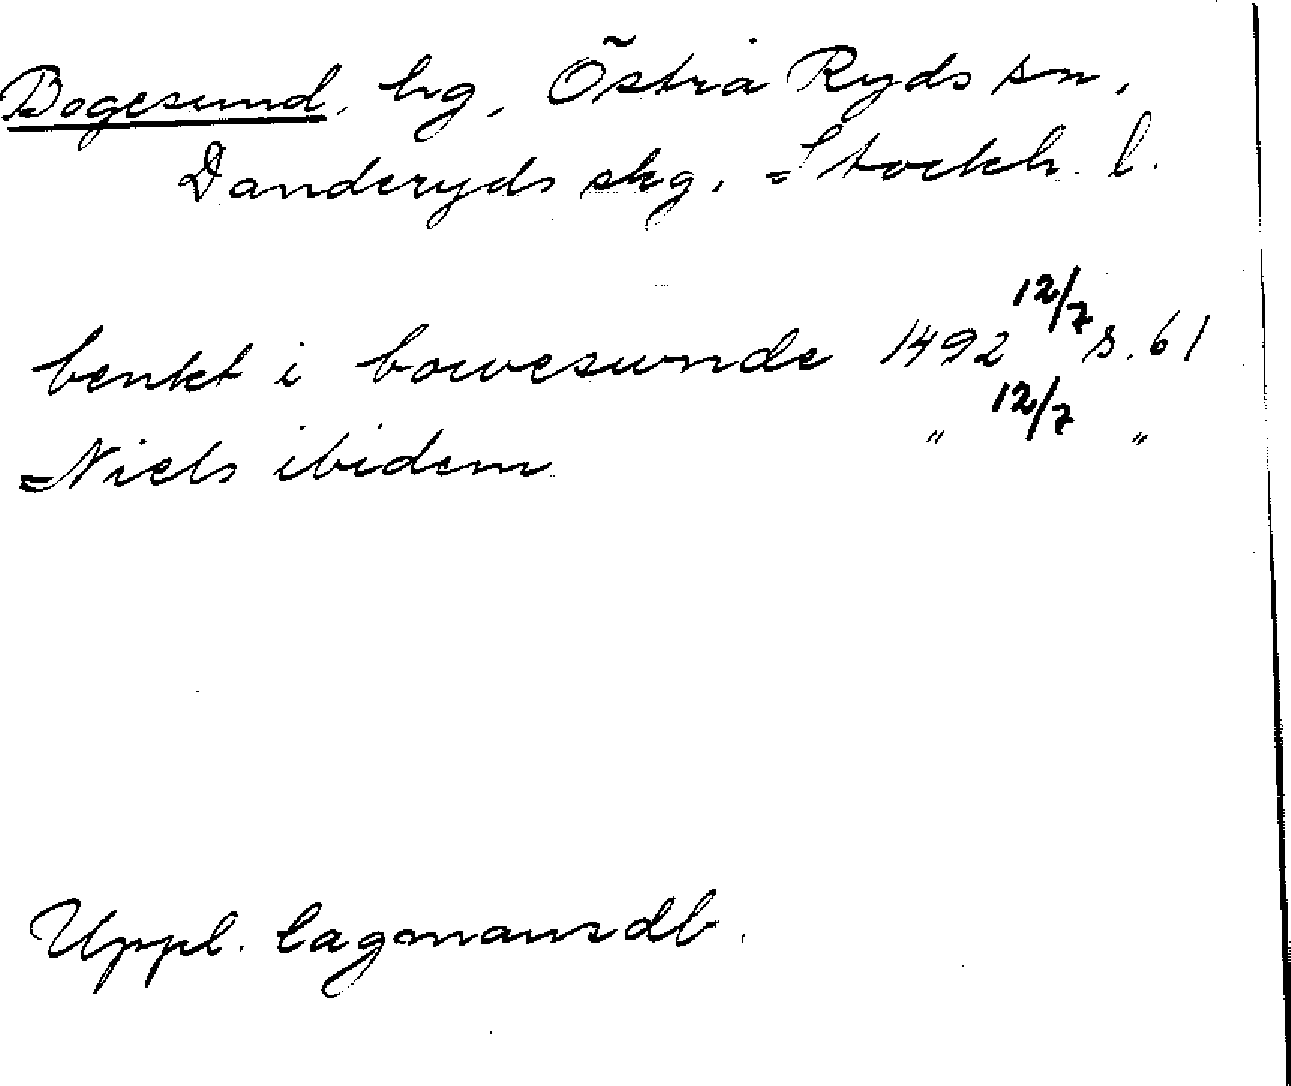 Bogesund, hg, Östra Ryds sn,
Danderyds skg, Stockh. l.
benkt i bowesunde 1492 12/7 s. 61
Niels ibidem " 12/7 "
Uppl. lagmansdb.